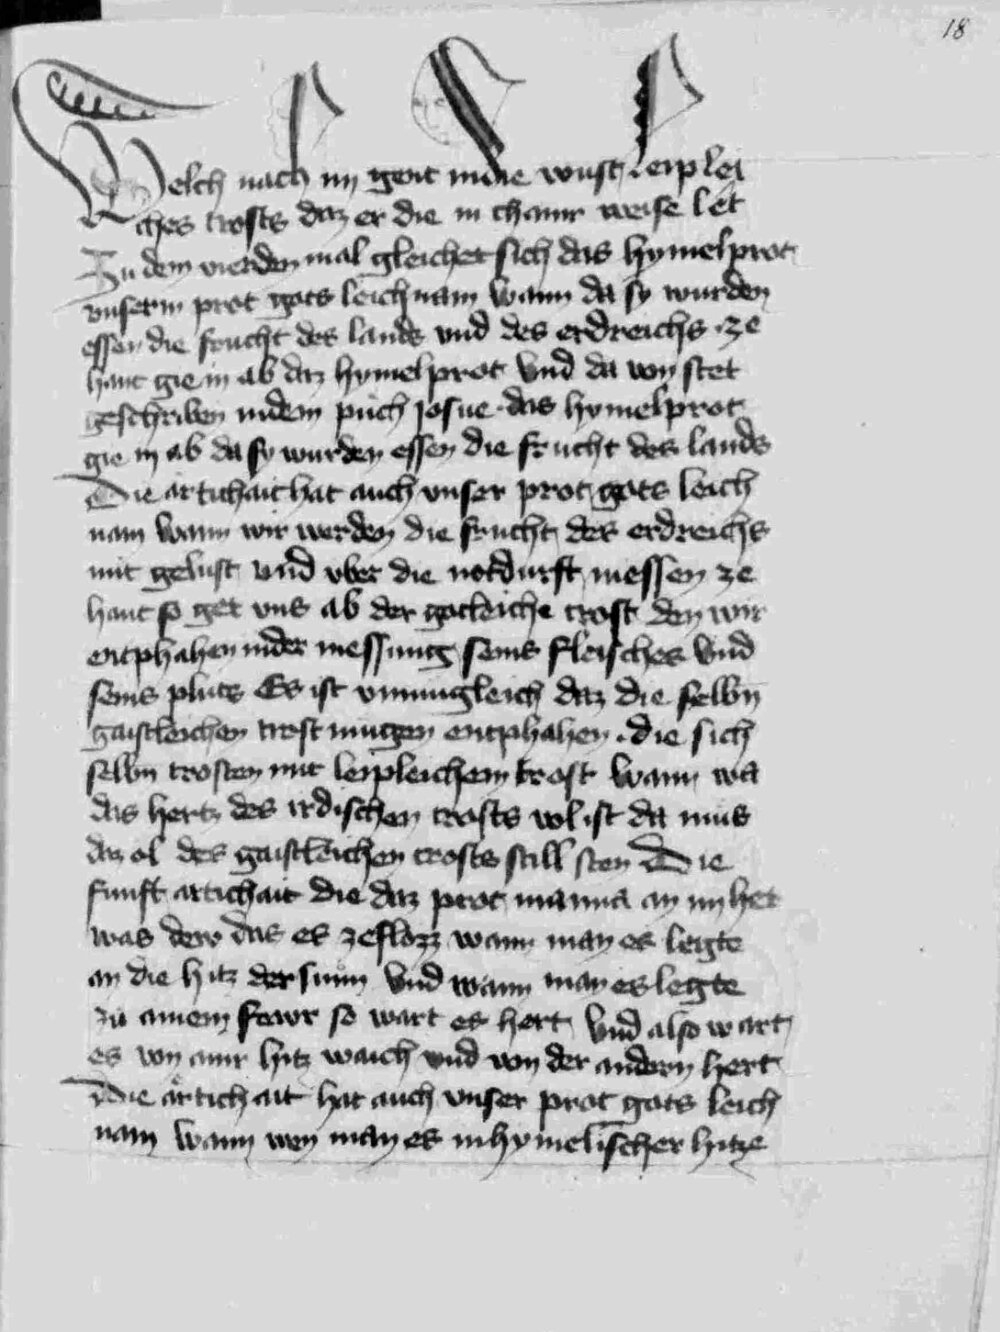 18
Welch nach im gent in die wust leiplei
ches trosts daz er die in chainr weise let
Zu dem vierden mal gleichet sich das hymelprot
unserm prot gots leichnam wann da sy wurden
essen die frucht des lands und des erdreichs ze
hant gie in ab daz hymelprot Und da von stet
geschriben in dem puch Josue. das hymelprot
gie in ab da sy wurden essen die frucht des lands
Die artichait hat auch unser prot gots leich
nam wann wir werden die frucht des erdreichs
mit gelust und uber die notdurft niessen ze
hant so get uns ab der gotleiche trost den wir
entphahen in der niessung seins fleisches Und
seins pluts Es ist unmugleich daz die selbn
gaistleichen trost mugen entphahen. die sich
selbn trosten mit leipleichem trost Wann wa
das hertz des irdischen trosts vol ist da mus
daz ol des gaistleichen trosts still sten Die
funft artichait die daz prot manna an im het
was dew das es zeflozz wann man es legte
an die hitz der sunn Und wann man es legte
zu ainem fewr so wart es hert Und also wart
es von ainr hitz waich und von der andern hert
Die artichait hat auch unser prot gots leich
nam Wann wen man es in hymelischer hitze